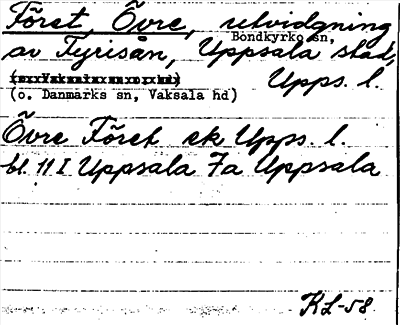 Föret, Övre, utvidgning
Bondkyrko sn,
av Fyrisån, Uppsala stad,
Upps. l.
(o. Danmarks sn, Vaksala hd)
Övre Föret ek Upps. l.
bl. 11 I Uppsala 7a Uppsala
RL-58